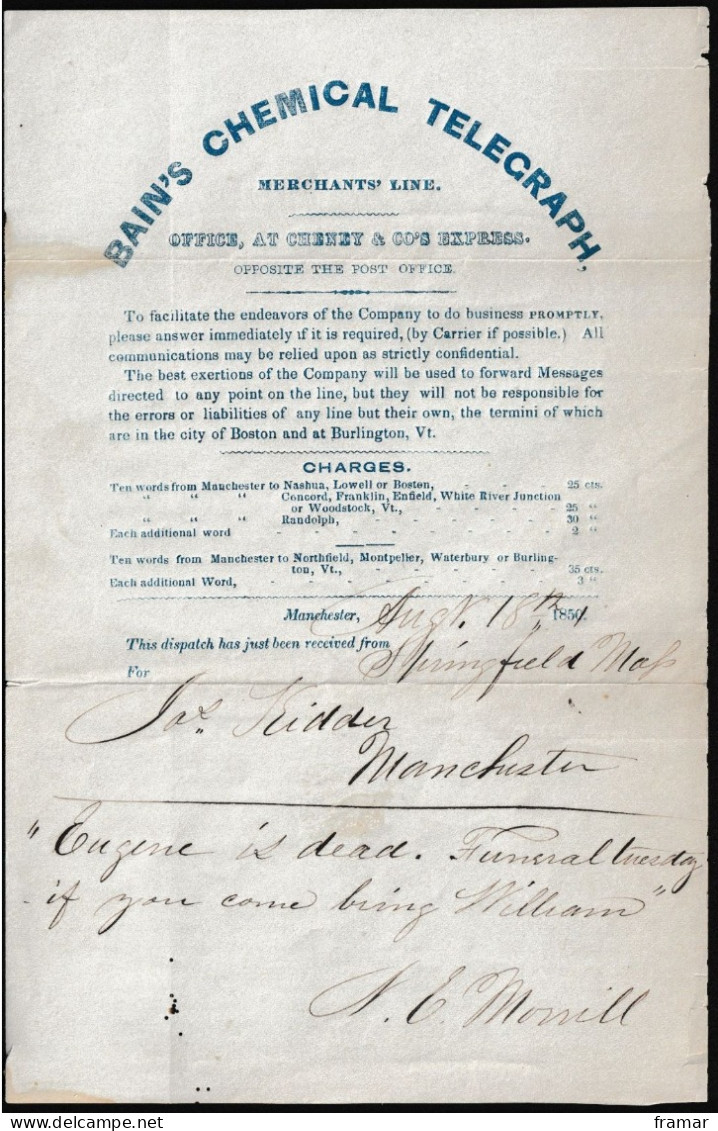 BAIN'S CHEMICAL TELEGRAPH,
MERCHANTS' LINE.
OFFICE, AT CHENEY & CO'S EXPRESS.
OPPOSITE THE POST OFFICE.
To facilitate the endeavors of the Company to do business PROMPTLY,
please answer immediately if it is required, (by Carrier if possible.) All
communications may be relied upon as strictly confidential.
The best exertions of the Company will be used to forward Messages
directed to any point on the line, but they will not be responsible for
the errors or liabilities of any line but their own, the termini of which
are in the city of Boston and at Burlington, Vt.
CHARGES.
Ten words from Manchester to Nashua, Lowell or Boston, - - - - 25 cts.
" " " Concord, Franklin, Enfield, White River Junction
or Woodstock, Vt., - - - - - - 25 "
" " " Randolph, - - - - - - - - 30 "
Each additional word - - - - - - - - - 2 "
Ten words from Manchester to Northfield, Montpelier, Waterbury or Burling-
ton, Vt., - - - - - - - - 35 cts.
Each additional Word, - - - - - - - - - 3 "
Manchester, Augt. 18th 1850.
This dispatch has just been received from Springfield Mass
For
Jas. Kidder
Manchester
"Eugene is dead. Funeral tuesday
if you come bring William"
N. E. Morrill
framar
delcampe.net